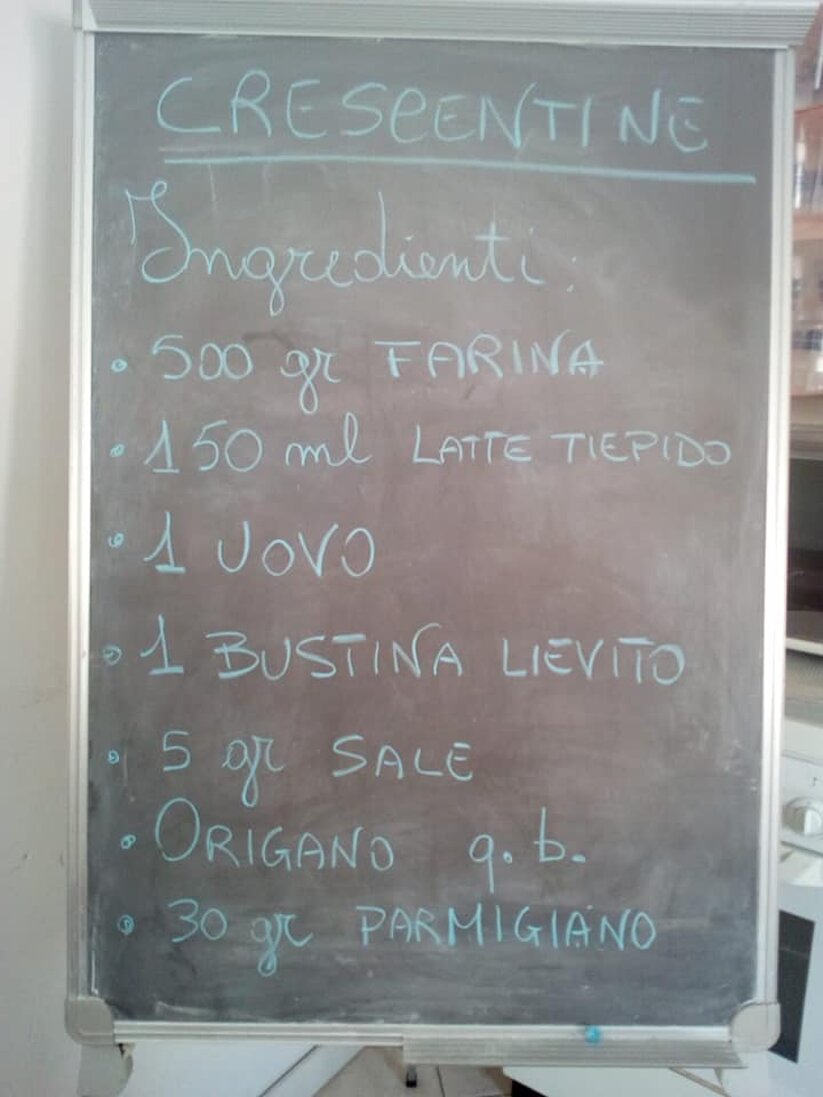 CRESCENTINE
Ingredienti:
• 500 gr FARINA
• 150 ml LATTE TIEPIDO
• 1 UOVO
• 1 BUSTINA LIEVITO
• 5 gr SALE
• ORIGANO q.b.
• 30 gr PARMIGIANO